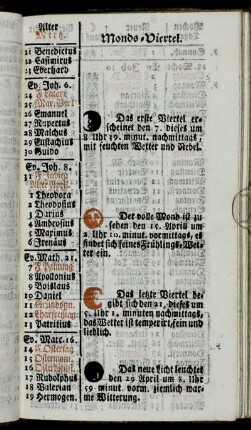 Alter
Mertz.
21 Benedictus
22 Casimirus
23 Eberhard
Ev. Joh. 6.
26 Emanuel
27 Rupertus
28 Malchus
29 Eustachius
30 Guido
Ev. Joh. 8.
1 Theodora
2 Theodosius
3 Darius
4 Ambrosius
5 Maximus
6 Irenäus
Ev. Math. 21.
8 Apollonius
9 Boislaus
10 Daniel
13 Patritius
Ev. Marc. 16.
17 Rudolphus
18 Valerian
19 Hermogen.
Monds-Viertel.
Das erste Viertel er-
scheinet den 7. dieses um
2 Uhr 19. minut. nachmittags,
mit feuchten Wetter und Nebel.
Der volle Mond ist zu
sehen den 15. April um
Uhr 10. minut. vormittags, es
findet sich seines Frühlings-Wet-
ter ein.
Das letzte Viertel be-
gibt sich den 21. dieses um
5 Uhr 1. minuten nachmittags,
das Wetter ist temperirt, fein und
lieblich.
Das neue Licht leuchtet
den 29 April um 8. Uhr
59 minut. vorm. ziemlich war-
me Witterung.